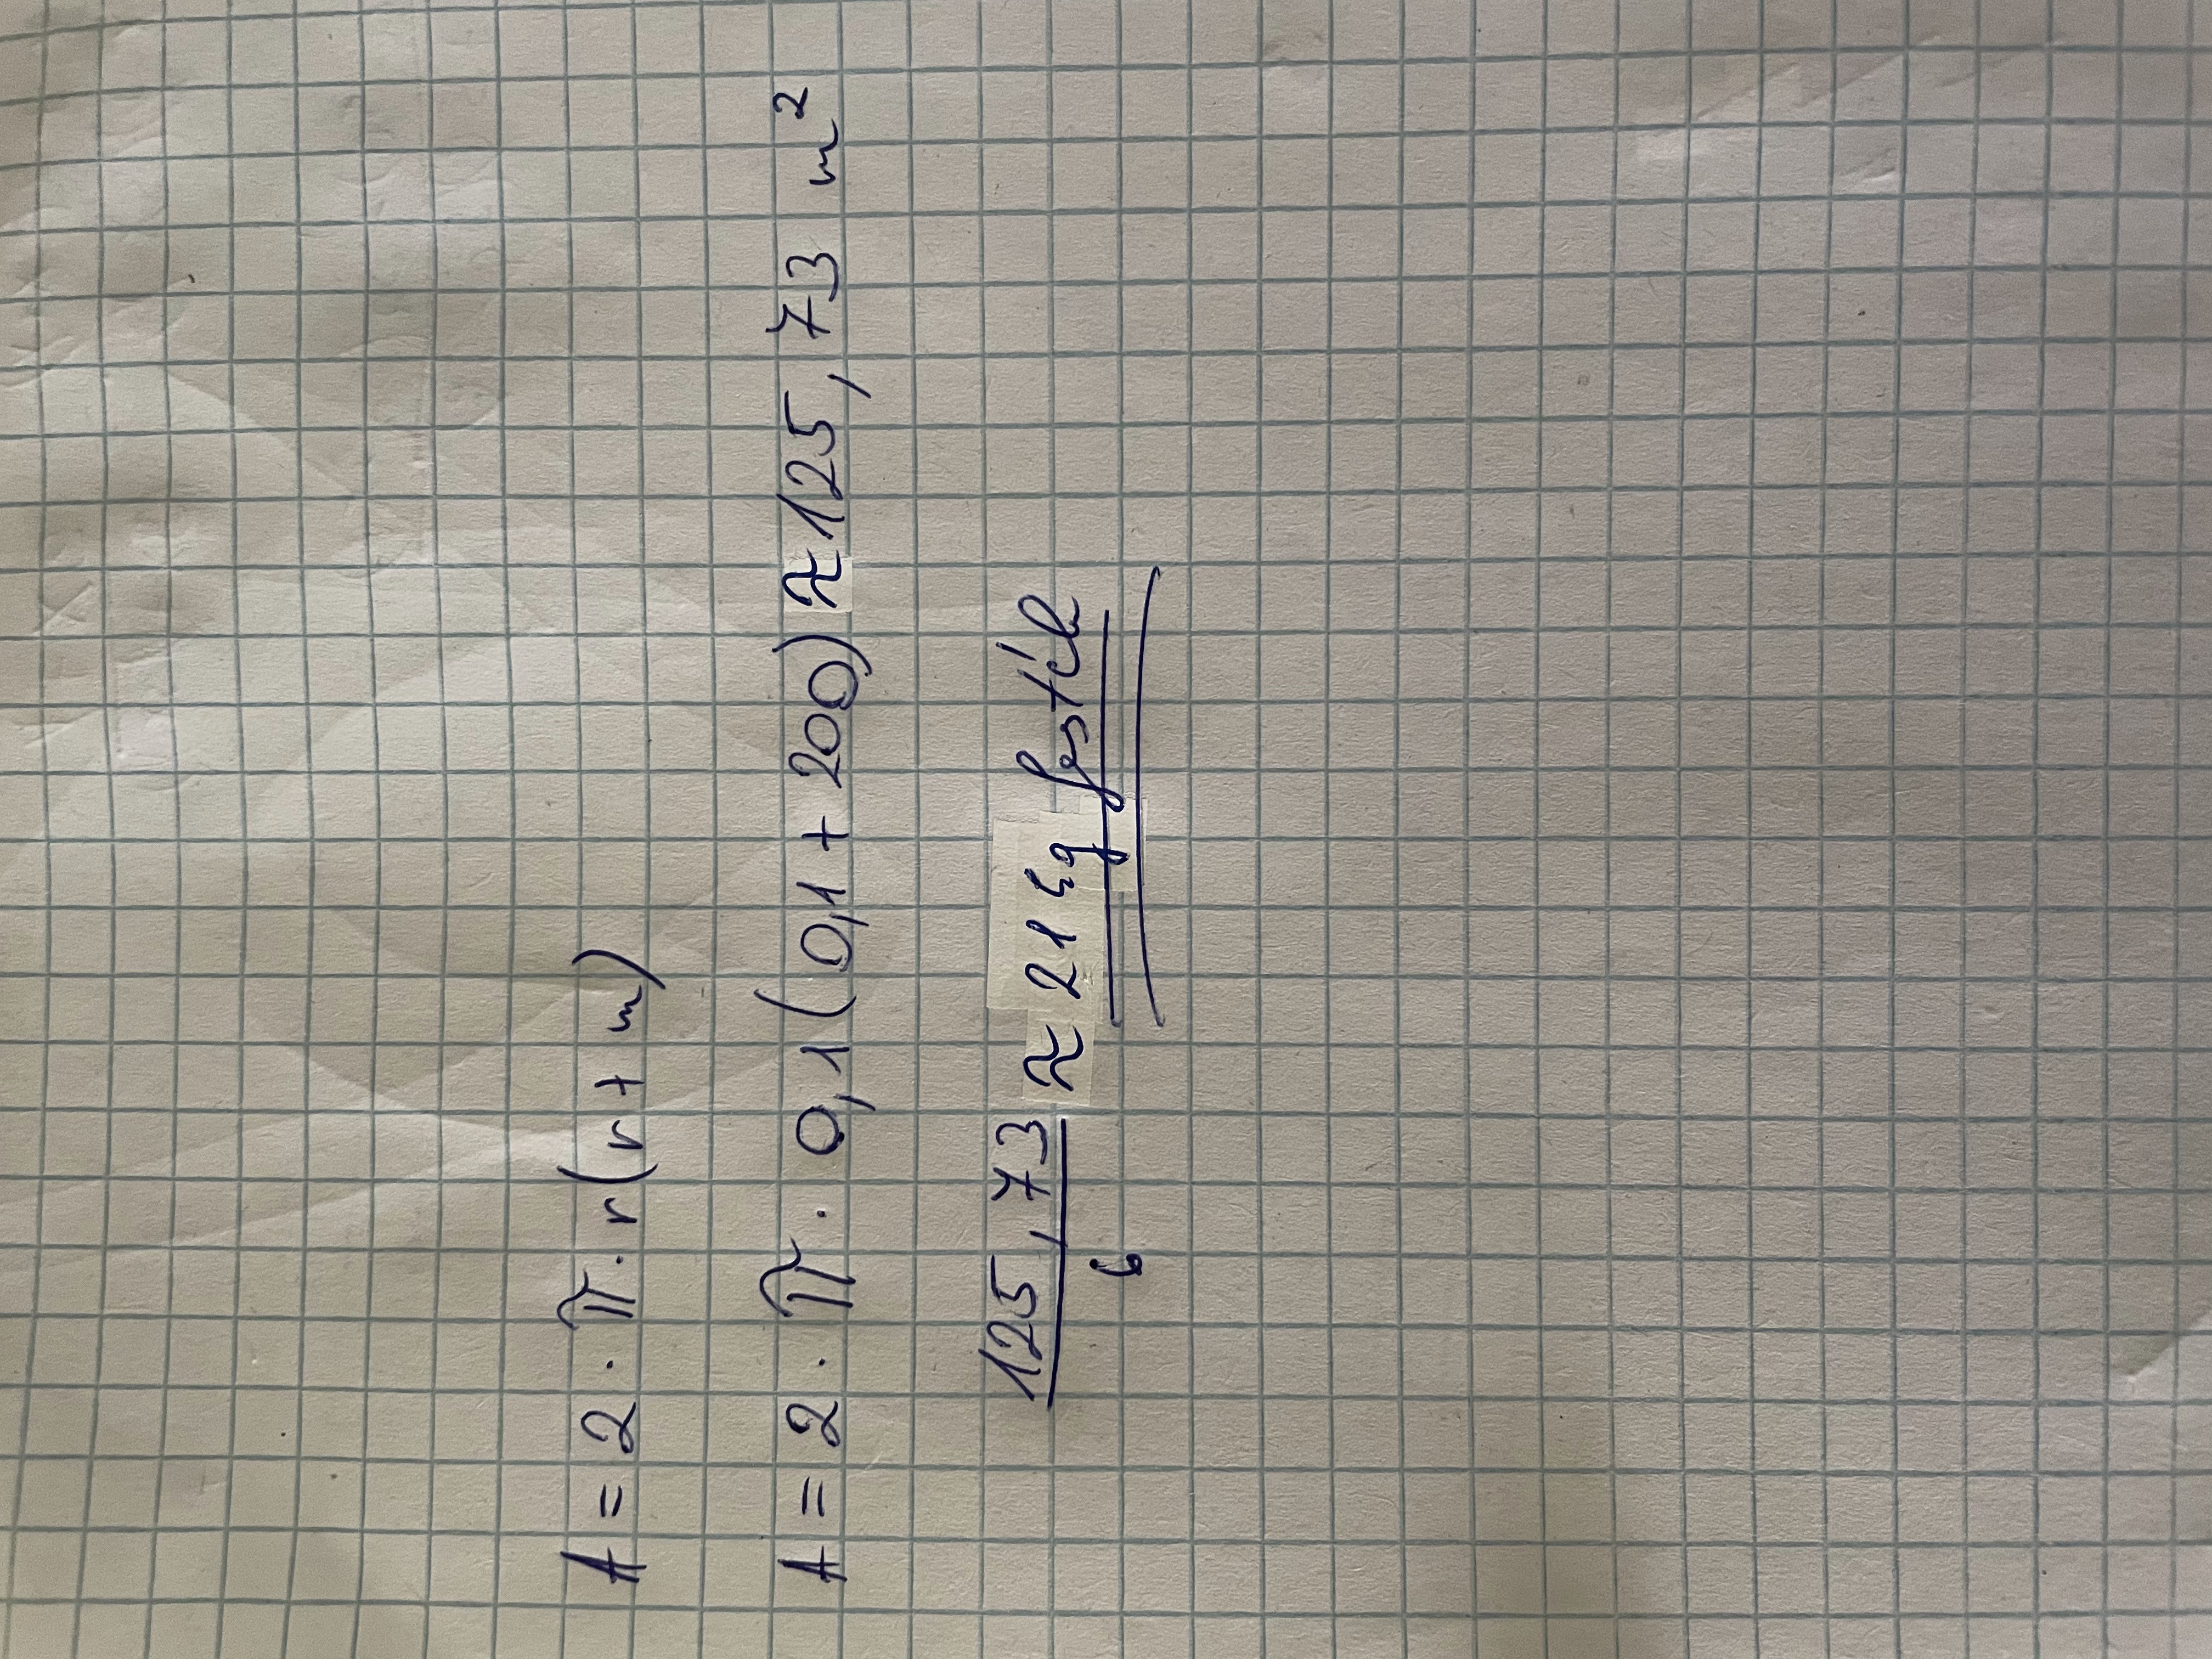 A = 2 · π · r (r + m)
A = 2 · π · 0,1 (0,1 + 200) ≈ 125,73 m²
125,73 / 6 ≈ 21 kg festék